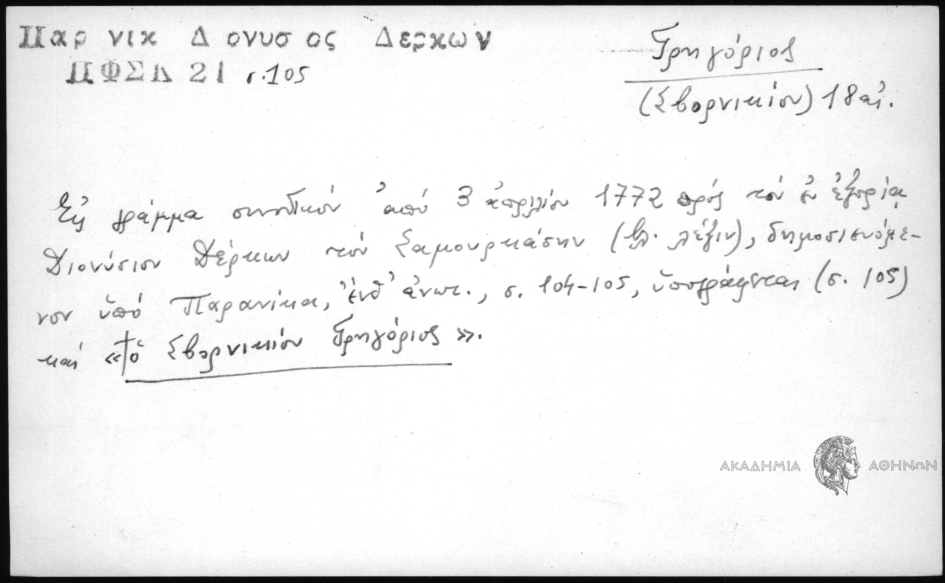 Παρ νικ Δ ονυσ ος Δερκων
ΠΦΣΛ 21 σ.105
Γρηγόριος
(Σβορνικίου) 18 αἰ.
Εἰς γράμμα συνοδικόν ἀπό 3 ἀπριλίου 1772 πρός τόν ἐν ἐξορίᾳ
Διονύσιον Δέρκων τόν Σαμουρκάσην (βλ. λέξιν), δημοσιευόμε-
νον ὑπό Παρανίκα, ἔνθ' ἀνωτ., σ. 104-105, ὑπογράφεται (σ. 105)
καί «† ὁ Σβορνικίου Γρηγόριος».
ΑΚΑΔΗΜΙΑ ΑΘΗΝΩΝ